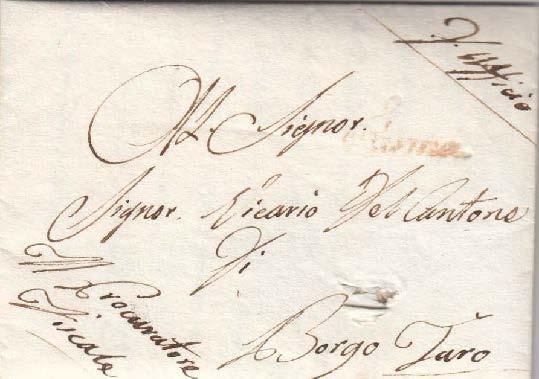 d'Ufficio
All. Signor.
Parma
Signor. Vicario Del Cantone
Di
Borgo Taro
Il Procuratore
Fiscale